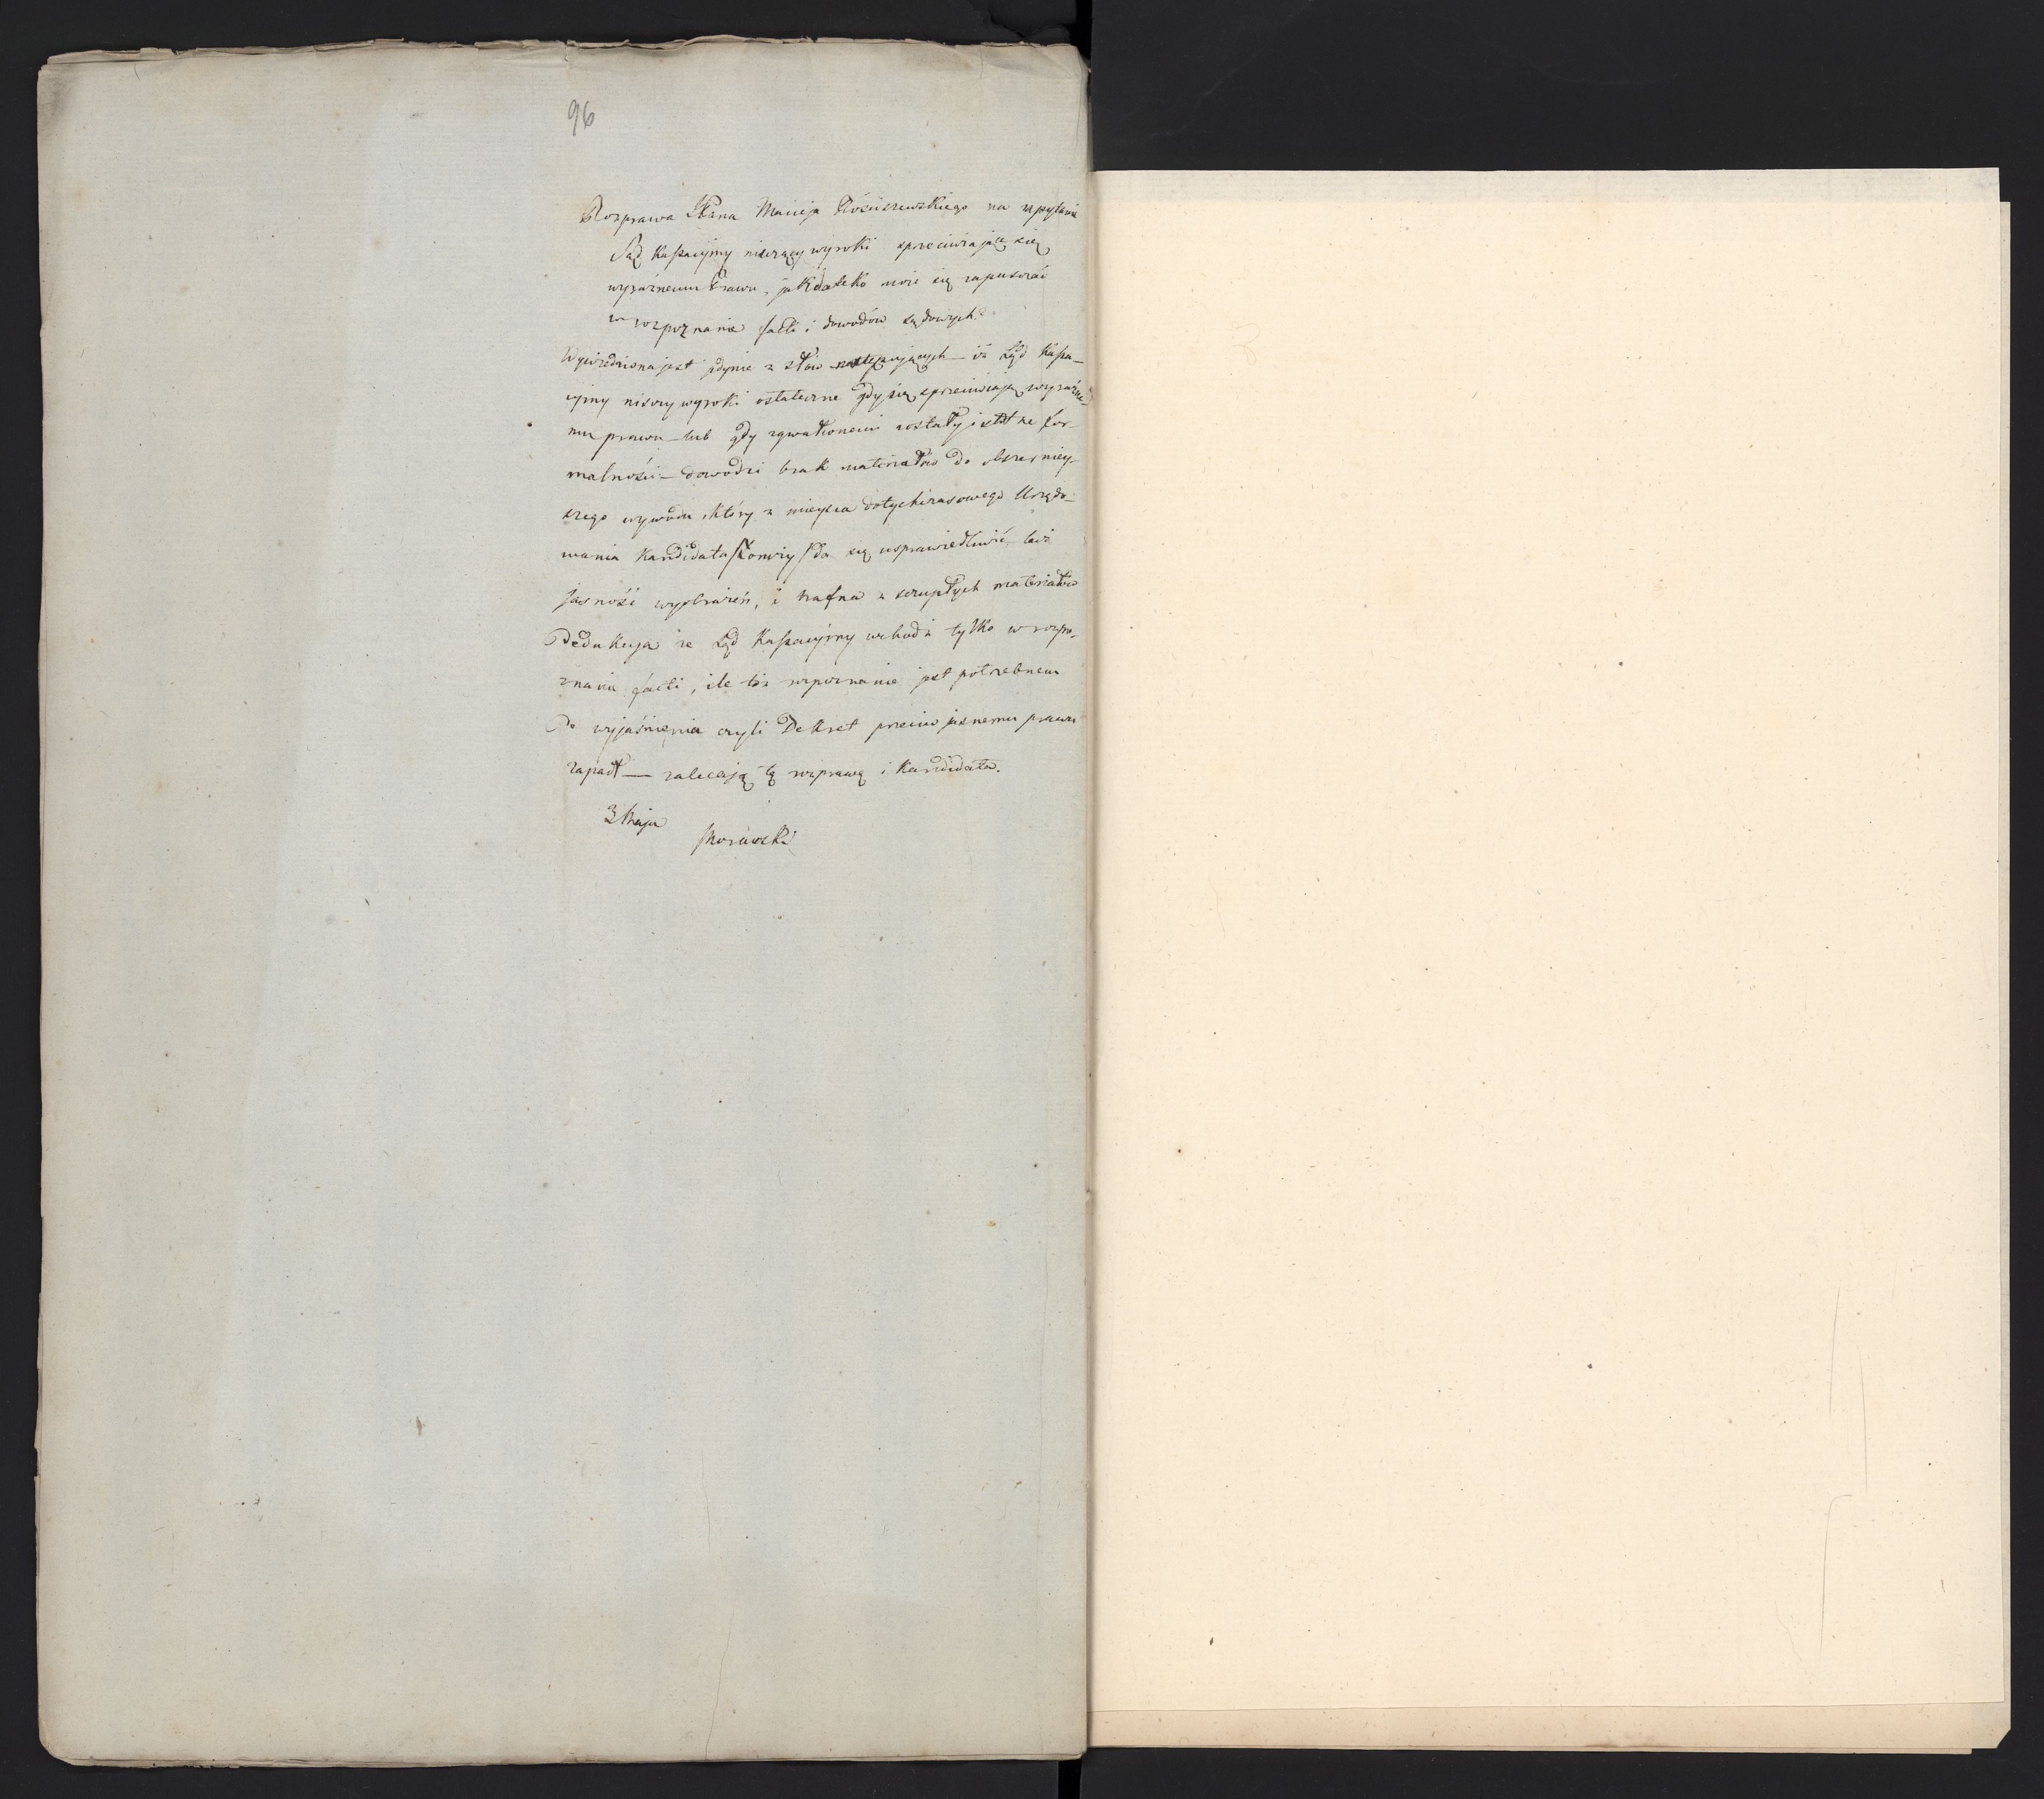 96
Rozprawa Pana Macieja Kościszewskiego na zapytanie
Sąd Kassacyjny niszczący wyroki sprzeciwiające się
wyraźnemu Prawu, jak daleko może się zapuszczać
w rozpoznanie facti i dowodów sądowych?
Wywiedziona jest jedynie z słów następujących – iż Sąd Kassa-
cyjny niszczy wyroki ostateczne gdy się sprzeciwiają wyraźne-
mu prawu – lub gdy zgwałconemi zostały istotne for-
malności – dowodzi brak materiałów do obszerniey-
szego wywodu, który z mieysca dotychczasowego Urzędo-
wania Kandidata da się usprawiedliwić – lecz
jasność wyobrażeń, i trafna z szczupłych materiałów
Dedukcja że Sąd Kassacyjny wchodzi tylko w rozpo-
znanie facti, ile toż rozpoznanie jest potrzebnem
Do wyjaśnienia czyli Dekret przeciw jasnemu prawu
zapadł — zalecają tę rozprawę i Kandidata.
3 Maja
Morawski